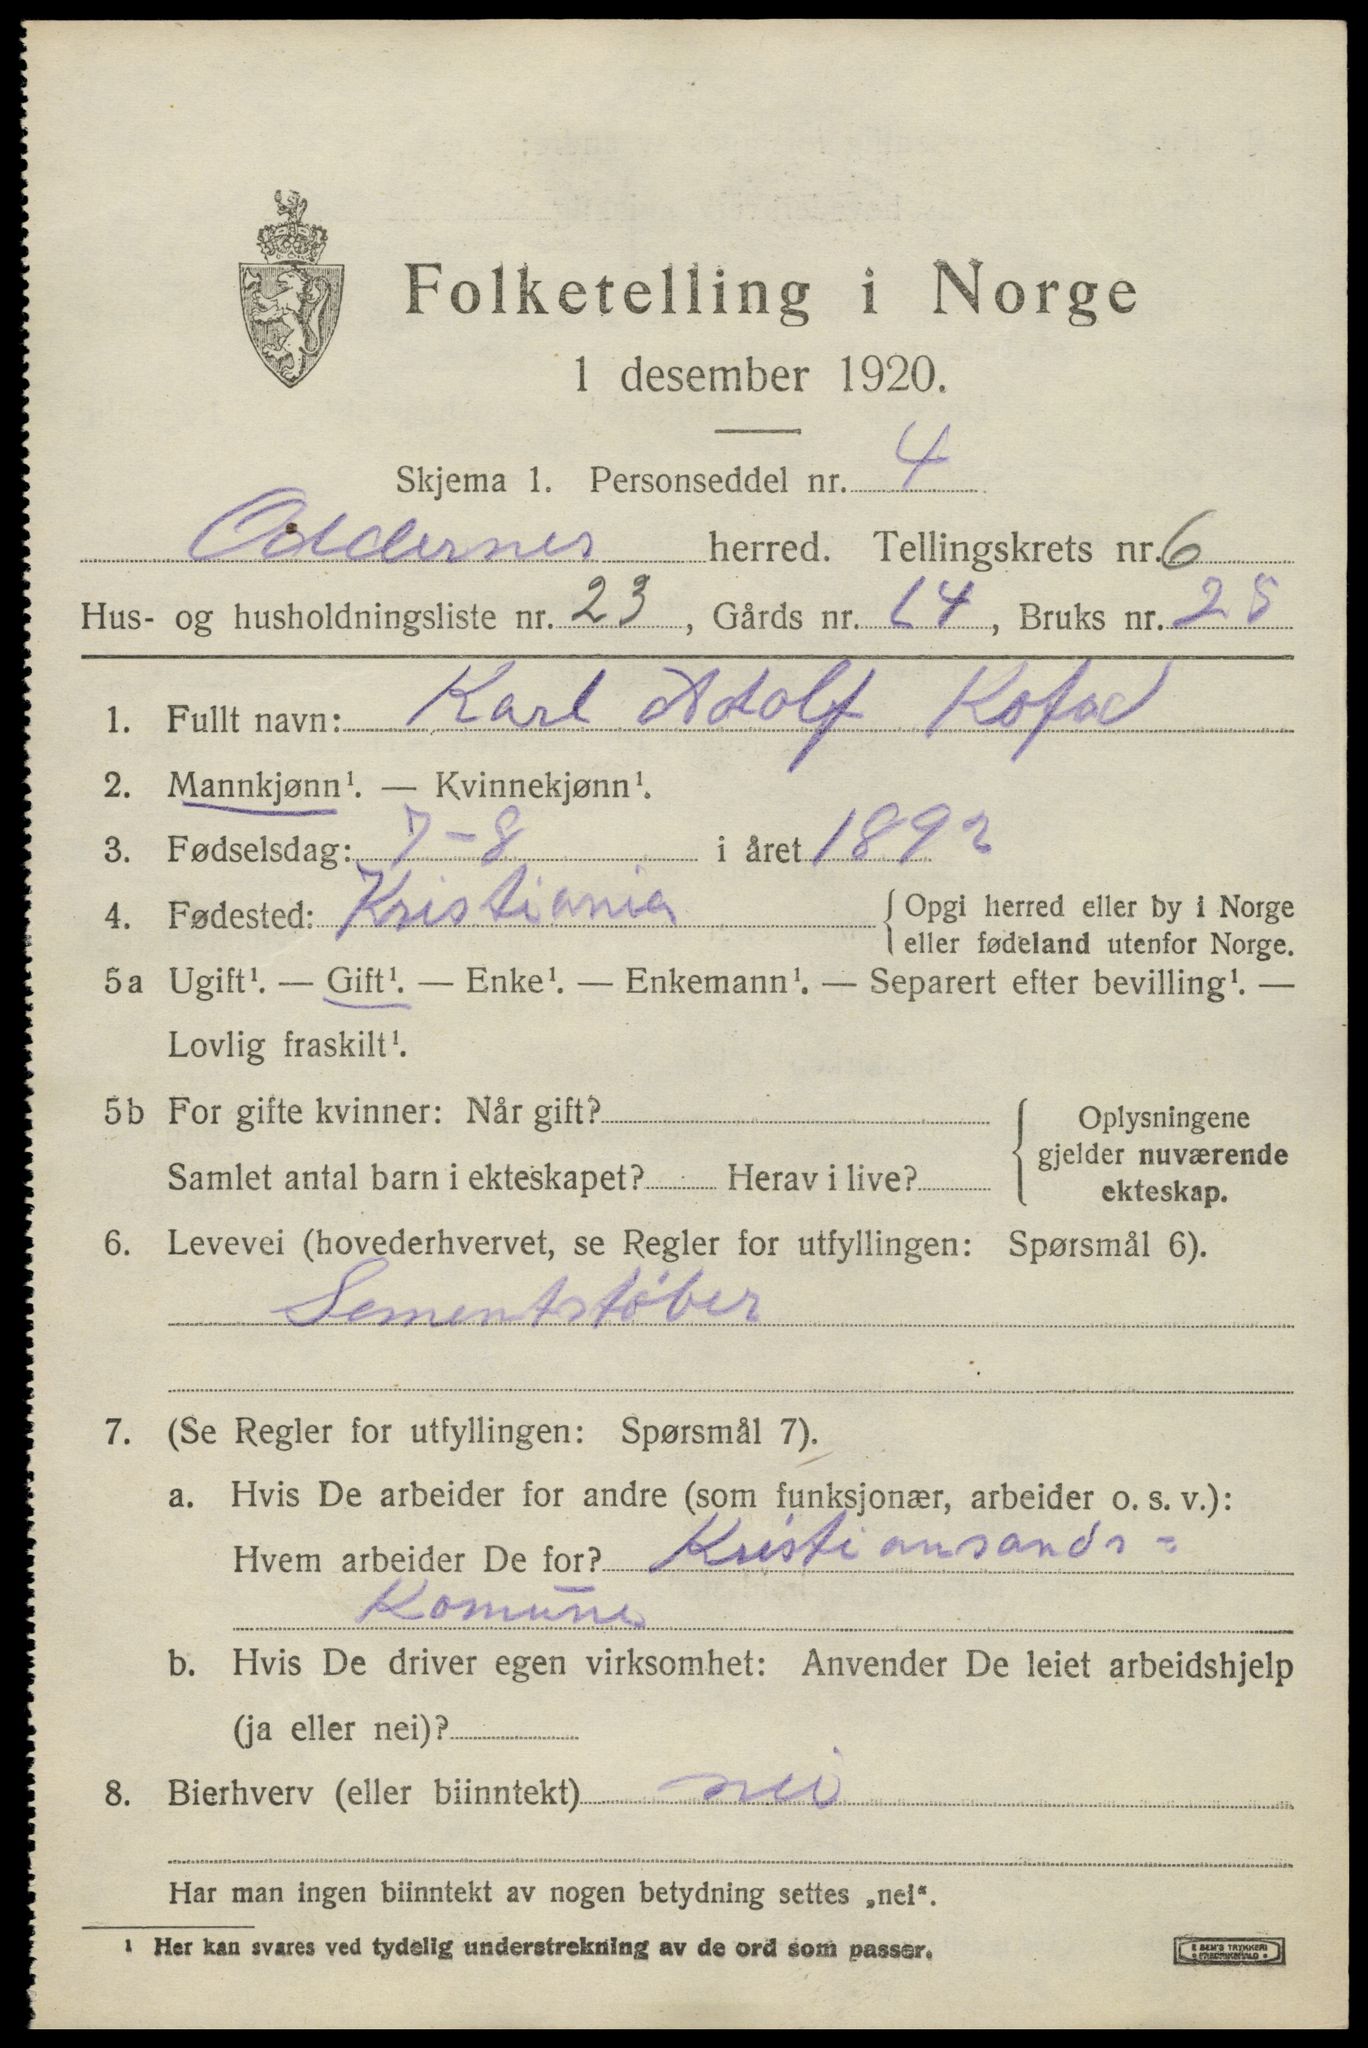 Folketelling i Norge
1 desember 1920.
Skjema 1. Personseddel nr. 4
Oddernes herred. Tellingskrets nr. 6
Hus- og husholdningsliste nr. 23, Gårds nr. 14, Bruks nr. 28
1. Fullt navn: Karl Adolf Kofod
2. Mannkjønn¹. — Kvinnekjønn¹.
3. Fødselsdag: 7-8 i året 1892
4. Fødested: Kristiania { Opgi herred eller by i Norge
eller fødeland utenfor Norge.
5a Ugift¹. — Gift¹. — Enke¹. — Enkemann¹. — Separert efter bevilling¹. —
Lovlig fraskilt¹.
5b For gifte kvinner: Når gift? { Oplysningene
gjelder nuværende
Samlet antal barn i ekteskapet? Herav i live? ekteskap.
6. Levevei (hovederhvervet, se Regler for utfyllingen: Spørsmål 6).
Sementstöber
7. (Se Regler for utfyllingen: Spørsmål 7).
a. Hvis De arbeider for andre (som funksjonær, arbeider o. s. v.):
Hvem arbeider De for? Kristiansands=
Komune
b. Hvis De driver egen virksomhet: Anvender De leiet arbeidshjelp
(ja eller nei)?
8. Bierhverv (eller biinntekt) nei
Har man ingen biinntekt av nogen betydning settes „nei“.
¹ Her kan svares ved tydelig understrekning av de ord som passer.
E SEM'S TRYKKERI
FREDRIKSHALD